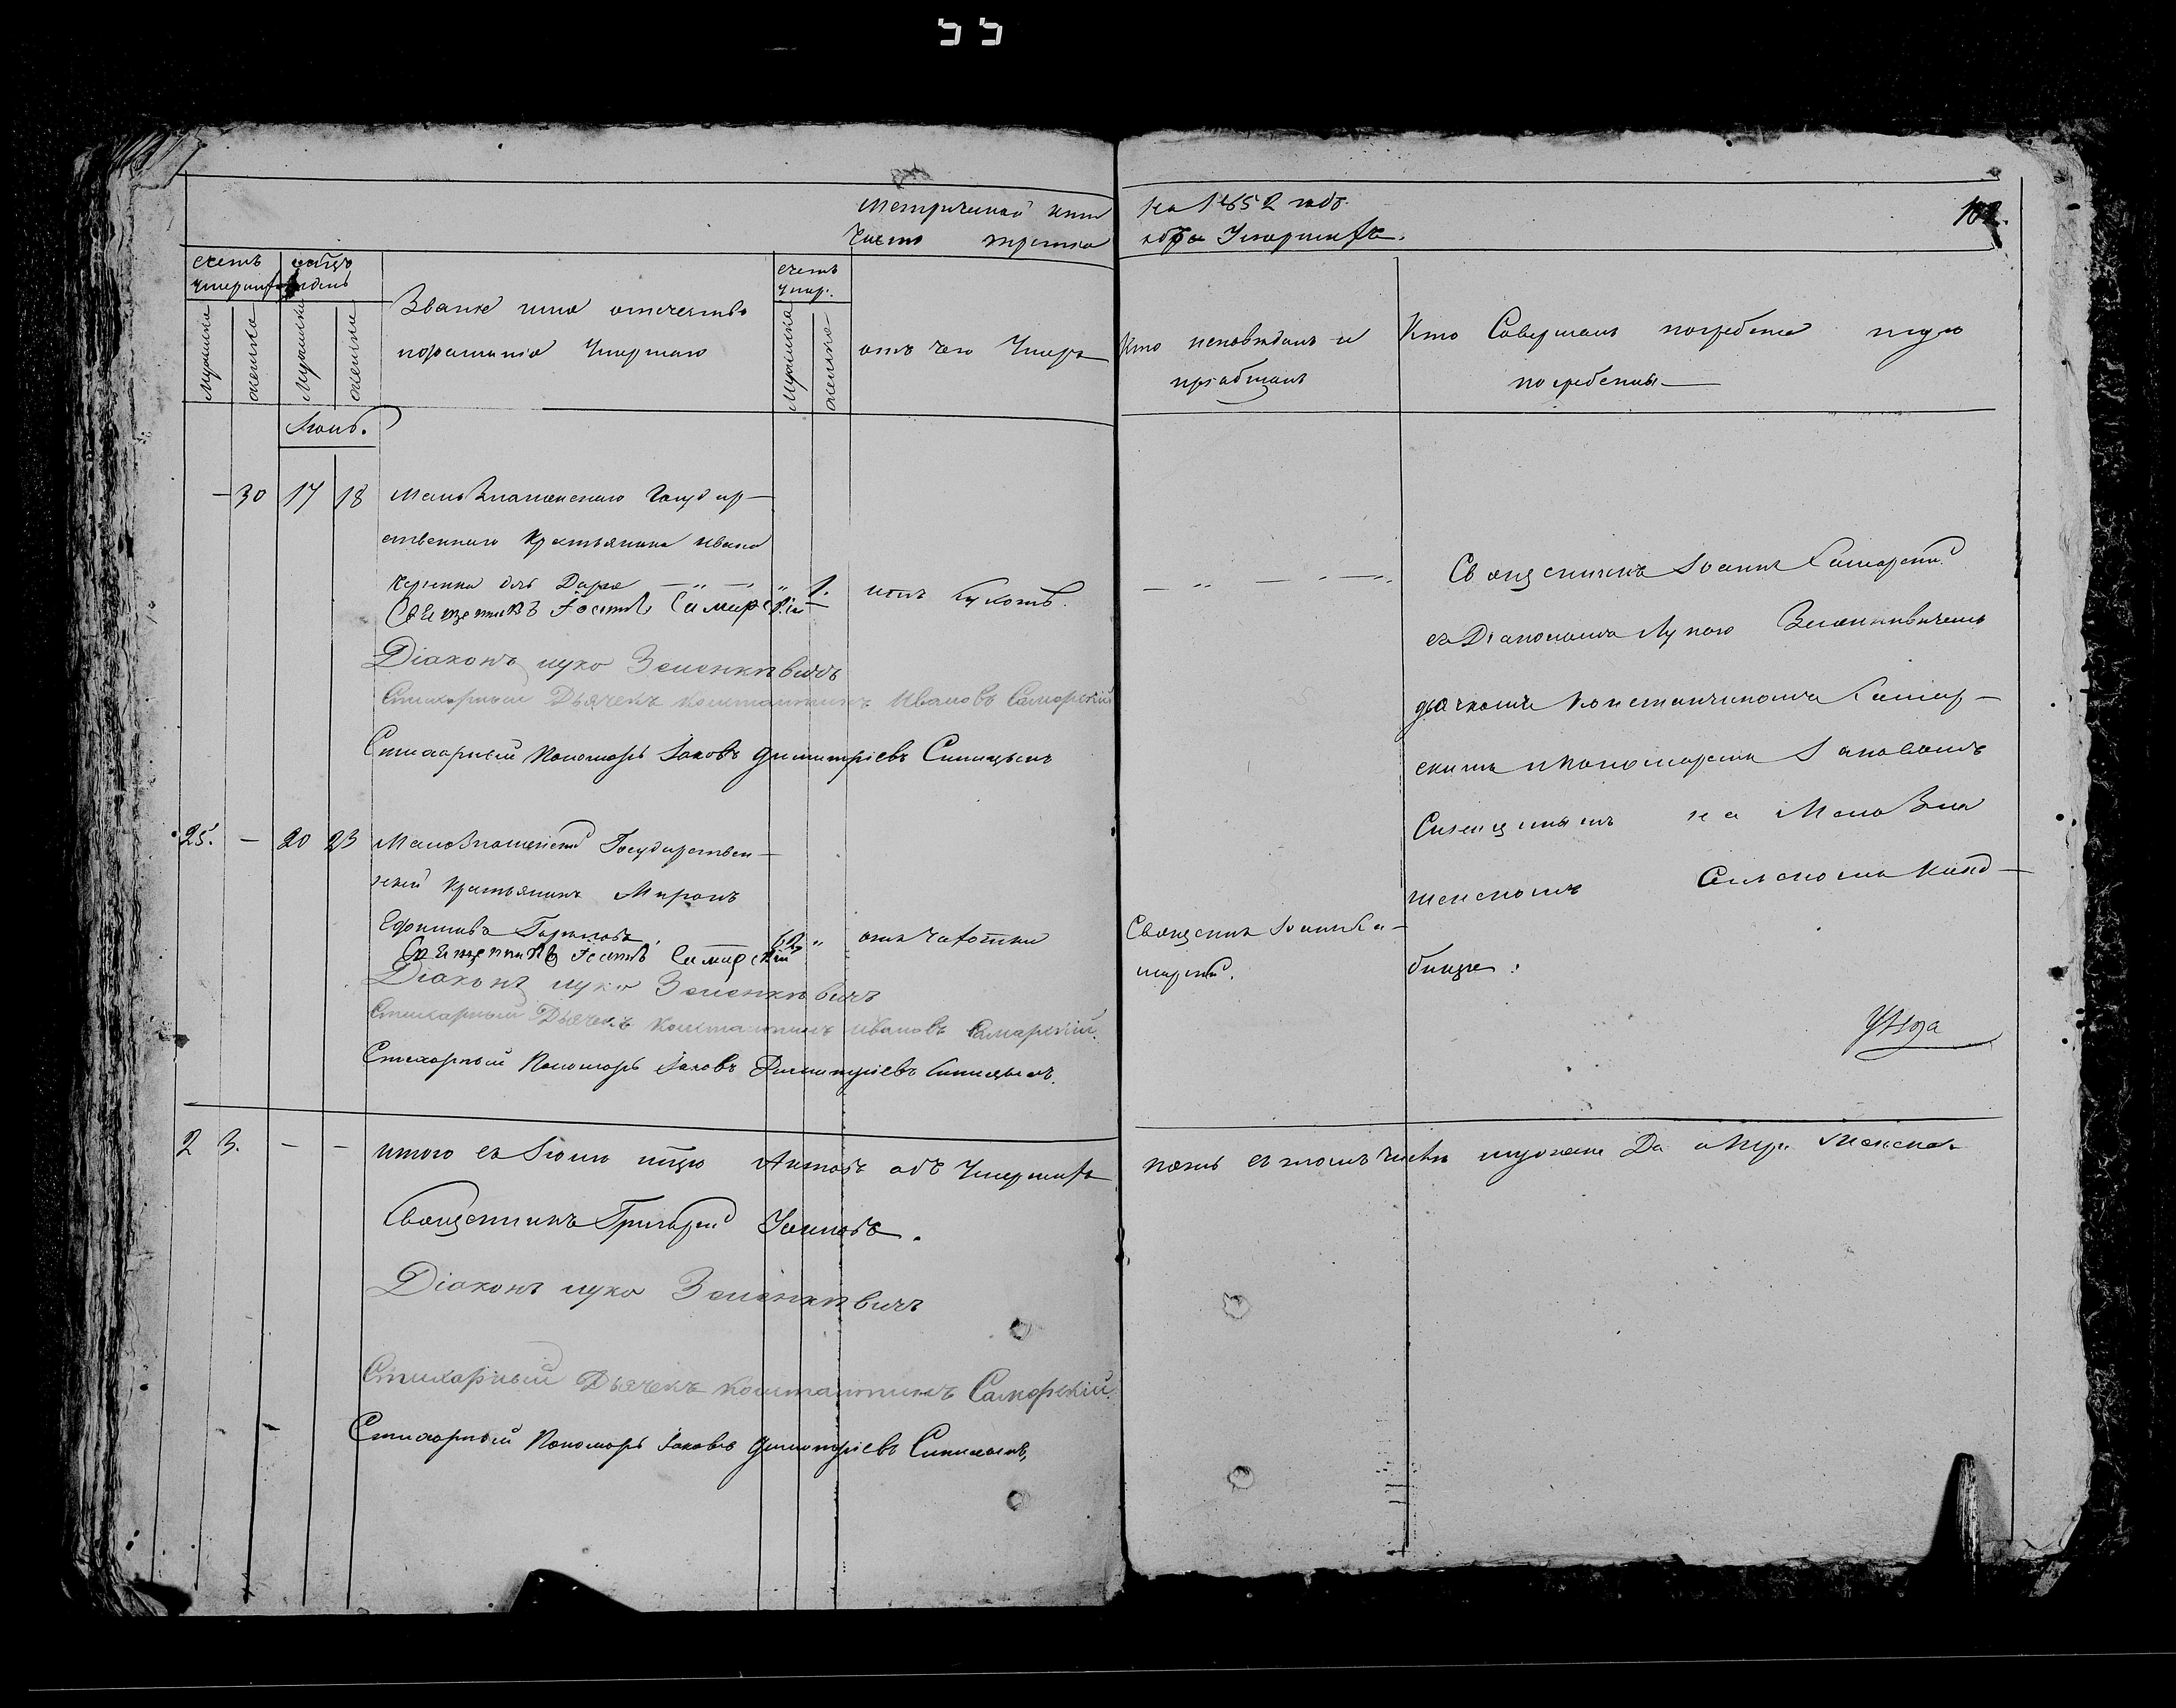 55
Метрической кни
Часть третья
на 1852 годъ
обѣ Умершихъ.
102.
счетъ умершихъ
Мужеска
женска
день
Мужеска
женска
Званіе имя отечество
и фамилія Умершаго
счетъ умер.
Мужеска
женска
отъ чего Умеръ
Кто исповѣдалъ и
пріобщалъ
Кто Совершалъ погребеніе и гдѣ
погребены
Іюнь.
— 30 17 18 МалоЗнаменскаго Государ-
ственнаго Крестьянина Ивана
дочь Дарья 1. отъ
Священникъ Іоаннъ Самарскій
Діаконъ Лука Зеленкевичъ
Стихарный Дьячекъ Константинъ Ивановъ Самарскій
Стихарный Пономарь Іаковъ Димитріевъ Синицынъ
Священникъ Іоаннъ Самарскій
съ Діакономъ Лукою Зеленкевичемъ
дьячкомъ Константиномъ Самар-
скимъ и пономаремъ Іаковомъ
Синицынымъ на МалоЗна
менскомъ Сельскомъ Клад-
бищѣ.
25. — 20 23 МалоЗнаменскій Государствен-
ный Крестьянинъ Миронъ
Ефимовъ 62 " отъ чахотки
Священникъ Іоаннъ Са-
марскій.
Священникъ Іоаннъ Самарскій
Діаконъ Лука Зеленкевичъ
Стихарный Дьячекъ Константинъ Ивановъ Самарскій.
Стихарный Пономарь Іаковъ Димитріевъ Синицынъ.
2 3. — — итого въ Іюнѣ м-цѣ Актовъ объ Умершихъ
пять въ томъ числѣ мужеска Два и три женска
Священникъ Григорій
Діаконъ Лука Зеленкевичъ
Стихарный Дьячекъ Константинъ Самарскій.
Стихарный Пономарь Іаковъ Димитріевъ Синицынъ,